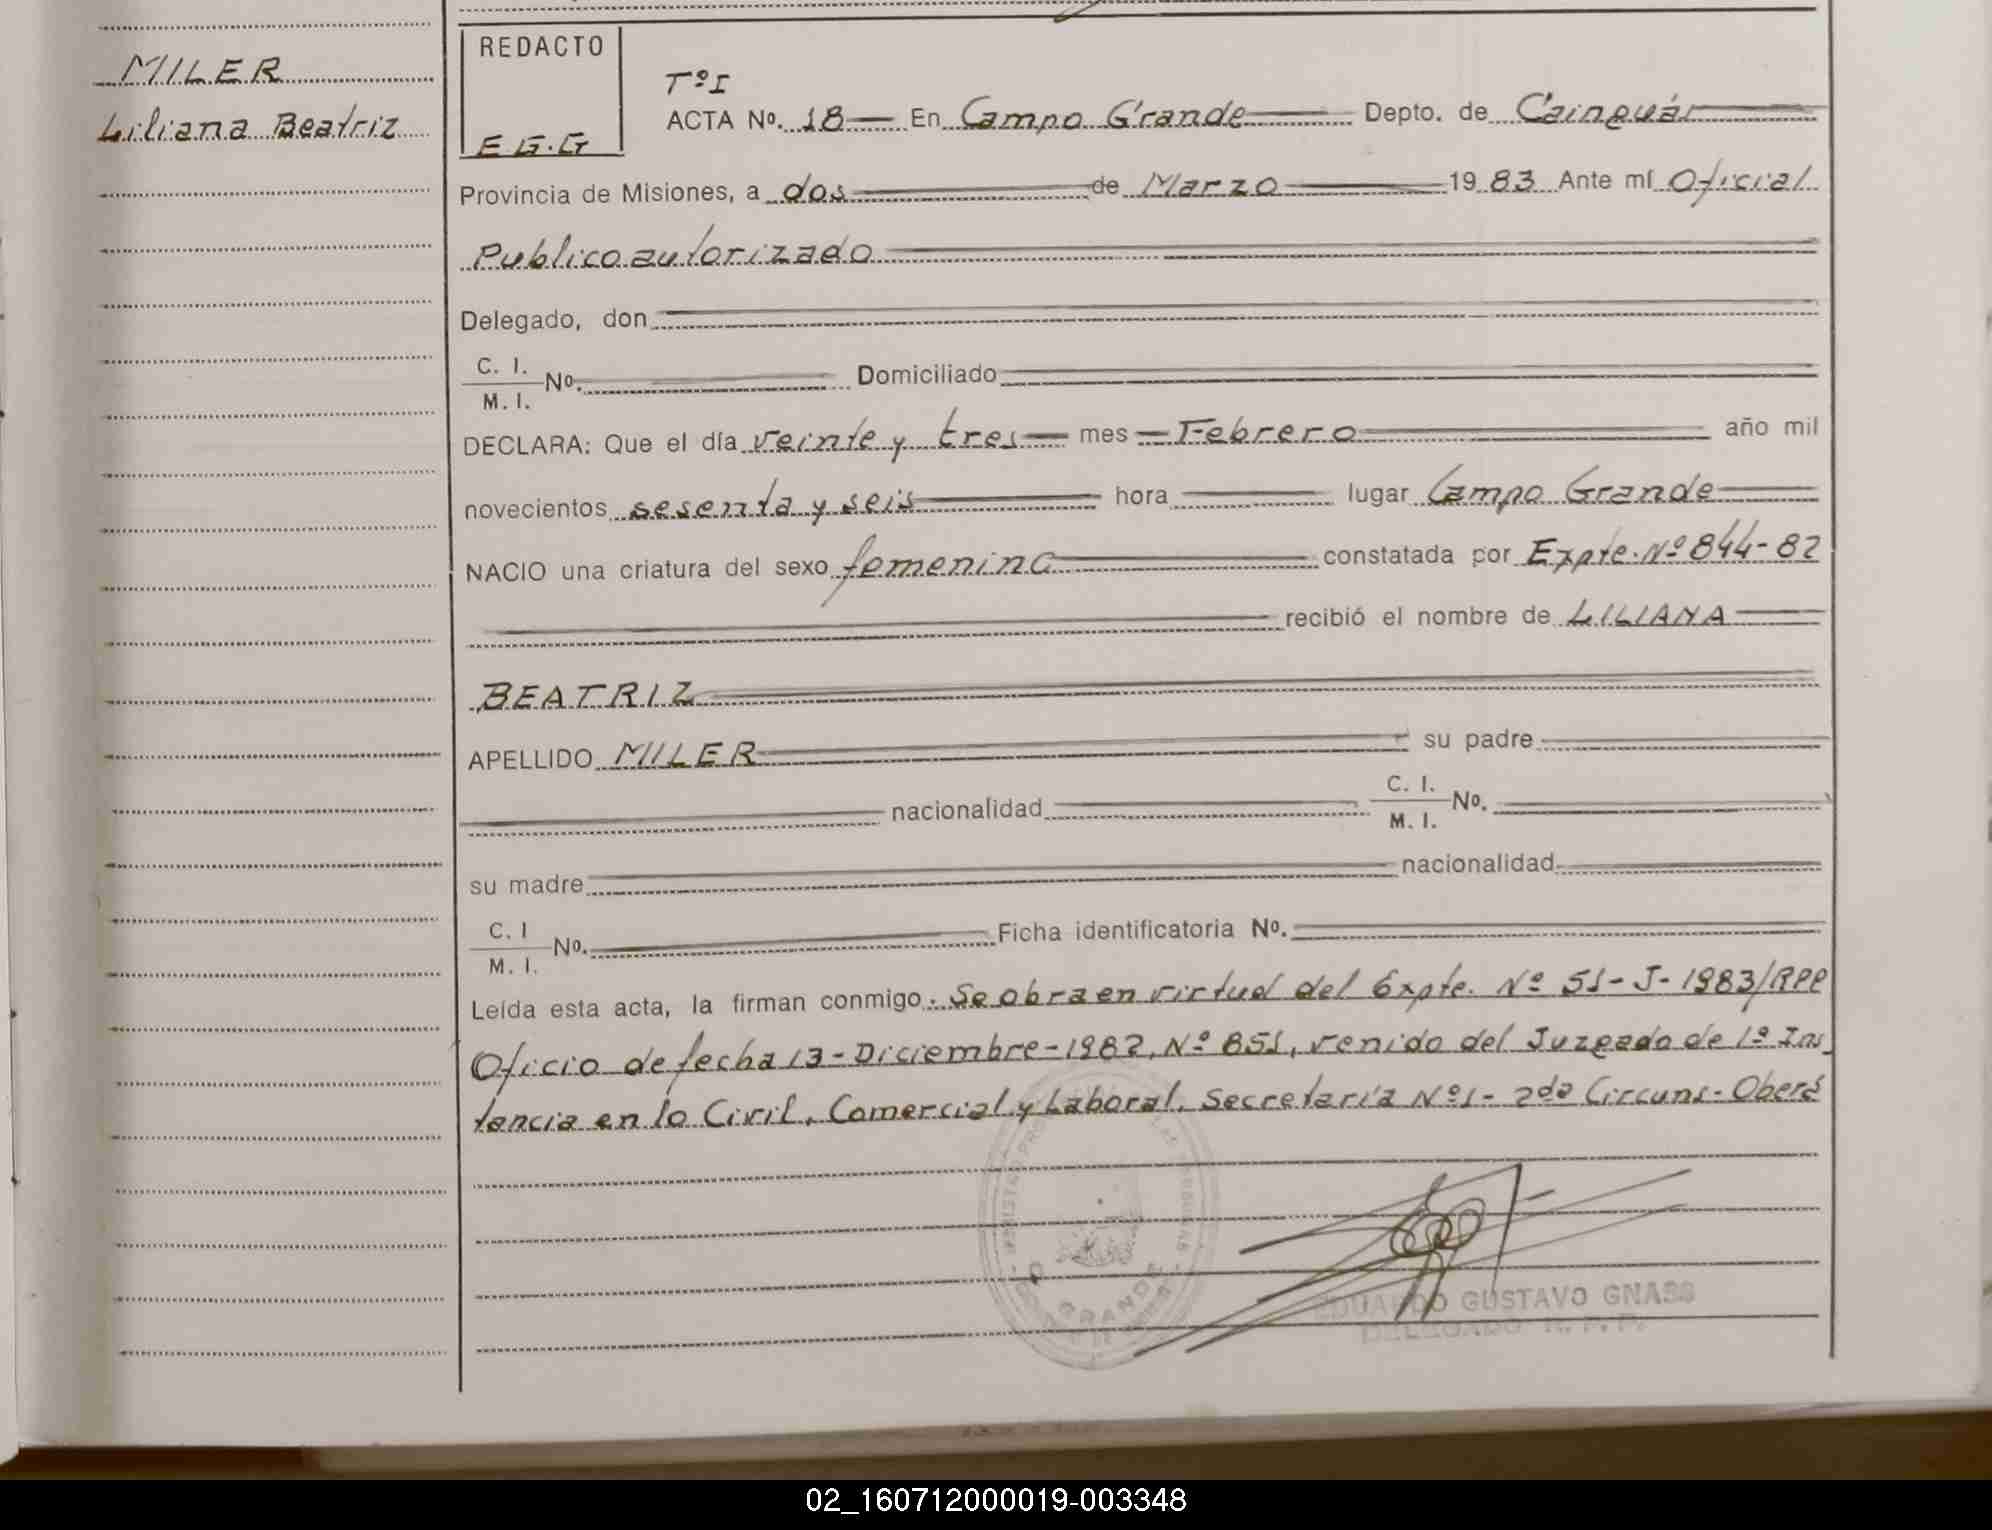 MILER
Liliana Beatriz
REDACTO
E.G.G
Tº I
ACTA Nº. 18 En Campo Grande Depto. de Cainguás
Provincia de Misiones, a dos de Marzo 1983 Ante mí Oficial
Publico autorizado
Delegado, don
C. I. M. I. Nº. Domiciliado
DECLARA: Que el día veinte y tres mes Febrero año mil
novecientos sesenta y seis hora lugar Campo Grande
NACIO una criatura del sexo femenino constatada por Expte. Nº 844-82
recibió el nombre de LILIANA
BEATRIZ
APELLIDO MILER su padre
nacionalidad C. I. M. I. Nº.
su madre nacionalidad
C. I M. I. Nº. Ficha identificatoria Nº.
Leída esta acta, la firman conmigo. Se obra en virtud del Expte. Nº 51-J-1983/RPP
Oficio de fecha 13-Diciembre-1982, Nº 851, venido del Juzgado de 1º Ins
tancia en lo Civil, Comercial y Laboral, Secretaría Nº1- 2da Circuns- Oberá
GRANDE
EDUARDO GUSTAVO GNASS
DELEGADO R. P. P.
02_160712000019-003348